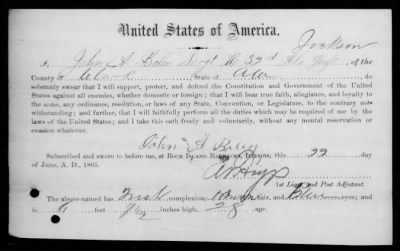 United States of America.
Jackson
I, John A Sergt K 32d Ala Inft, of the
County of State of Ala, do
solemnly swear that I will support, protect, and defend the Constitution and Government of the United
States against all enemies, whether domestic or foreign; that I will bear true faith, allegiance, and loyalty to
the same, any ordinance, resolution, or laws of any State, Convention, or Legislature, to the contrary not-
withstanding; and further, that I will faithfully perform all the duties which may be required of me by the
laws of the United States; and I take this oath freely and voluntarily, without any mental reservation or
evasion whatever.
John A
Subscribed and sworn to before me, at ROCK ISLAND BARRACKS, ILLINOIS, this 22
day of June, A. D., 1865.
1st Lieut and Post Adjutant.
The above-named has complexion, hair, and Blue eyes; and is
6 feet inches high; 28 age.